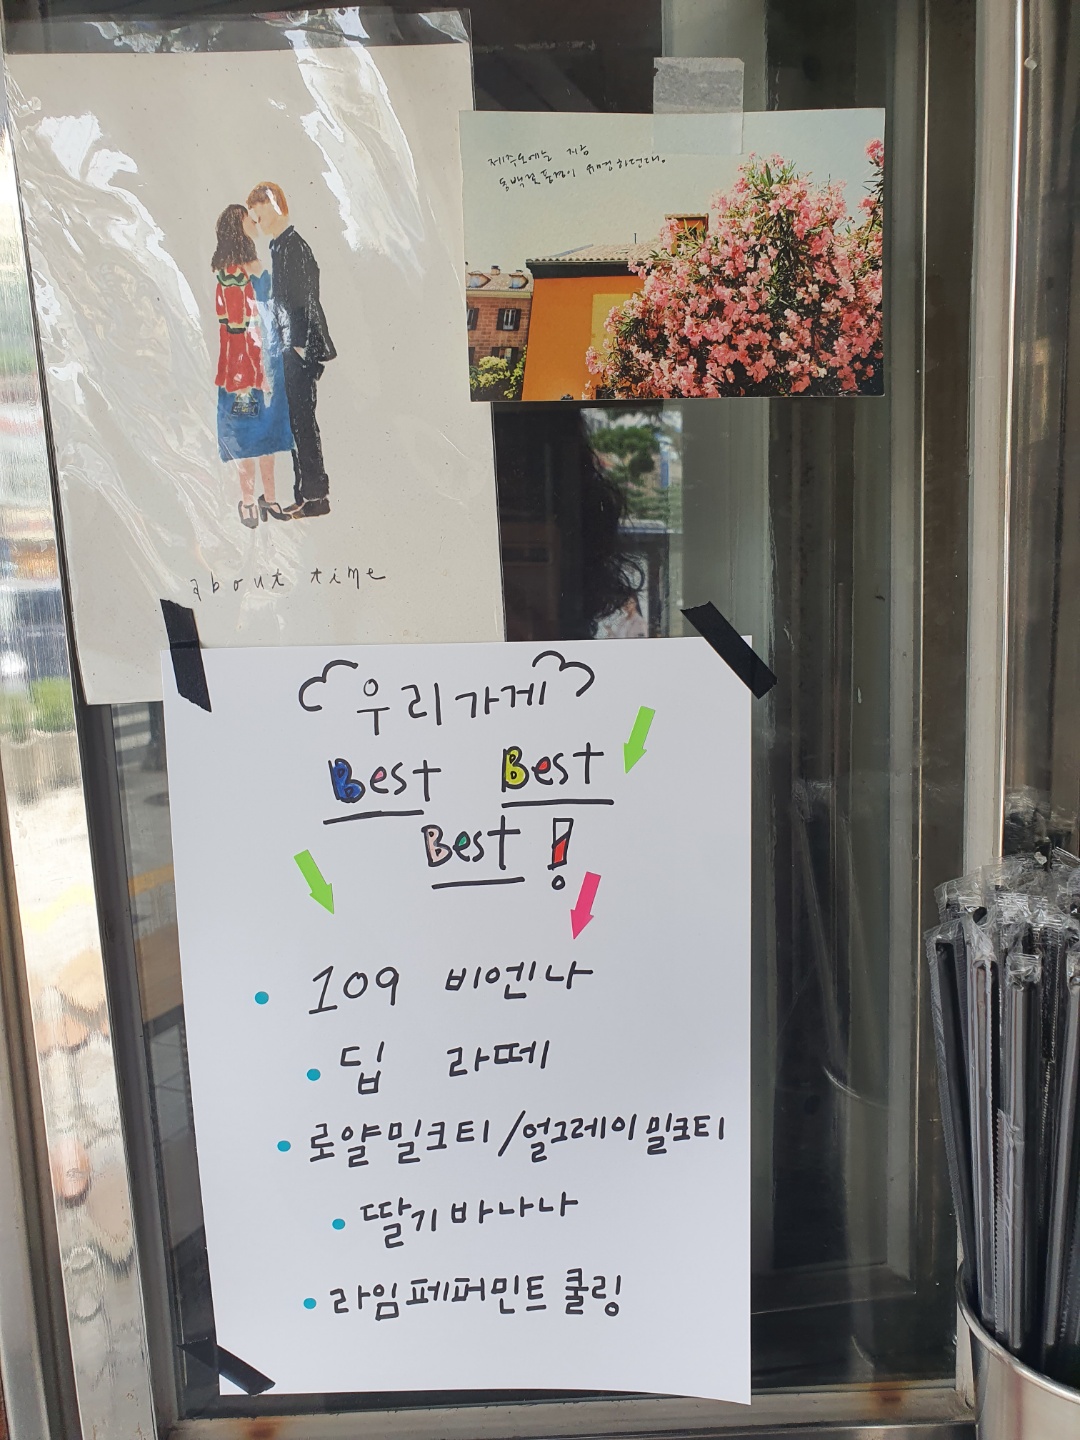 about time
제주도에는 지금
동백꽃
우리가게
Best Best
Best!
• 109 비엔나
• 딥 라떼
• 로얄밀크티/얼그레이밀크티
• 딸기바나나
• 라임페퍼민트 쿨링